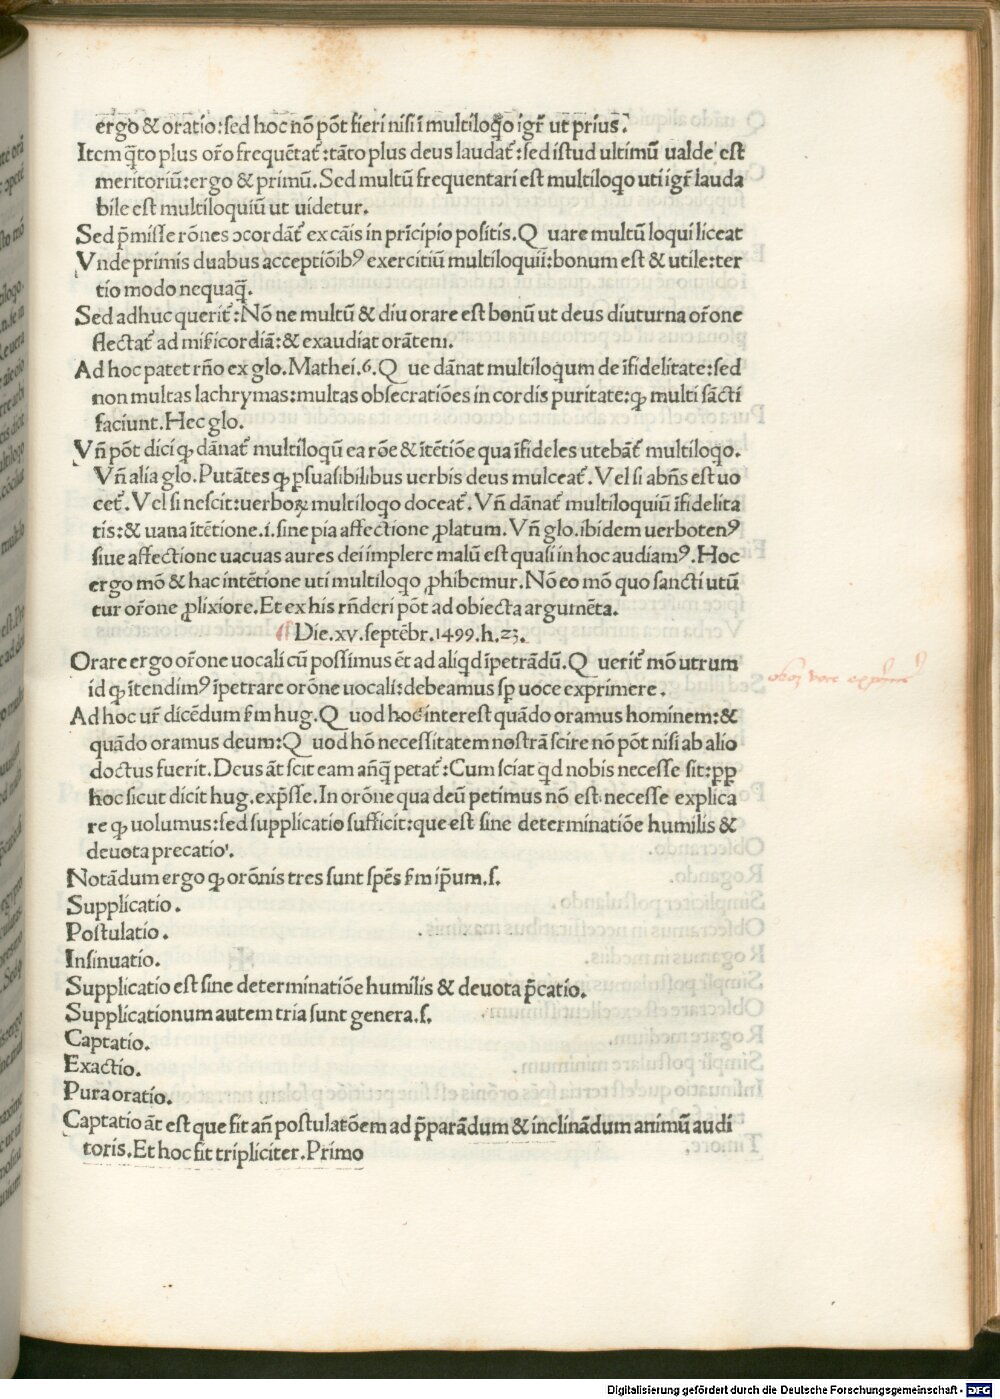 ergo & oratio:sed hoc nō pōt fieri nisi ī multiloq̊o igr̄ ut prius.
Item q̄to plus or̄o frequētat᷑:tāto plus deus laudat᷑:sed istud ultimū ualde est
meritoriū:ergo & primū.Sed multū frequentari est multiloqo uti igr̄ lauda
bile est multiloquiū ut uidetur.
Sed p̄misse rōnes ↄcordāt᷑ ex cāis in prīcipio positis.Q uare multū loqui liceat
Vnde primis duabus acceptiōibꝰ exercitiū multiloquii:bonum est & utile:ter
tio modo nequaq̄.
Sed adhuc querit᷑:Nō ne multū & diu orare est bonū ut deus diuturna or̄one
flectat᷑ ad mīcordiā:& exaudiat orātem.
Ad hoc patet rn̄o ex glo.Mathei.6.Q ue dānat multiloqum de īfidelitate:sed
non multas lachrymas:multas obsecratiōes in cordis puritate:ꝙ multi sācti
faciunt.Hec glo.
Vn̄ pōt dici ꝙ dānat᷑ multiloqū ea rōe & ītētiōe qua īfideles utebāt᷑ multiloqo.
Vn̄ alia glo.Putātes ꝙ ꝑsuasibilibus uerbis deus mulceat᷑.Vel si abn̄s est uo
cet᷑.Vel si nescit:uerboꝝ multiloqo doceat᷑.Vn̄ dānat᷑ multiloquiū īfidelita
tis:& uana ītētione.i.sine pia affectione ꝓlatum.Vn̄ glo.ibidem uerbotenꝰ
siue affectione uacuas aures dei implere malū est quasi in hoc audiamꝰ.Hoc
ergo mō & hac intētione uti multiloqo ꝓhibemur.Nō eo mō quo sancti utū
tur or̄one ꝓlixiore.Et ex his rn̄deri pōt ad obiecta argumēta.
Die.xv.septēbr.1499.h.23.
Orare ergo or̄one uocali cū possimus ēt ad aliqd īpetrādū.Q uerit᷑ mō utrum
id ꝙ ītendimꝰ īpetrare orōne uocali:debeamus sꝑ uoce exprimere.
Ad hoc ur̄ dicēdum f̄m hug.Q uod hoc interest quādo oramus hominem:&
quādo oramus deum:Q uod hō necessitatem nostrā scire nō pōt nisi ab alio
doctus fuerit.Deus āt scit eam añq̄ petat᷑:Cum sciat qd nobis necesse sit:ꝓp
hoc sicut dicit hug.exp̄sse.In orōne qua deū petimus nō est necesse explica
re ꝙ uolumus:sed supplicatio sufficit:que est sine determinatiōe humilis &
deuota precatio.
Notādum ergo ꝙ orōnis tres sunt spēs f̄m ip̄um.s.
Supplicatio.
Postulatio.
Insinuatio.
Supplicatio est sine determinatiōe humilis & deuota p̄catio.
Supplicationum autem tria sunt genera.s.
Captatio.
Exactio.
Pura oratio.
Captatio āt est que fit añ postulatōem ad p̄parādum & inclinādum animū audi
toris.Et hoc fit tripliciter.Primo
Digitalisierung gefördert durch die Deutsche Forschungsgemeinschaft - DFG